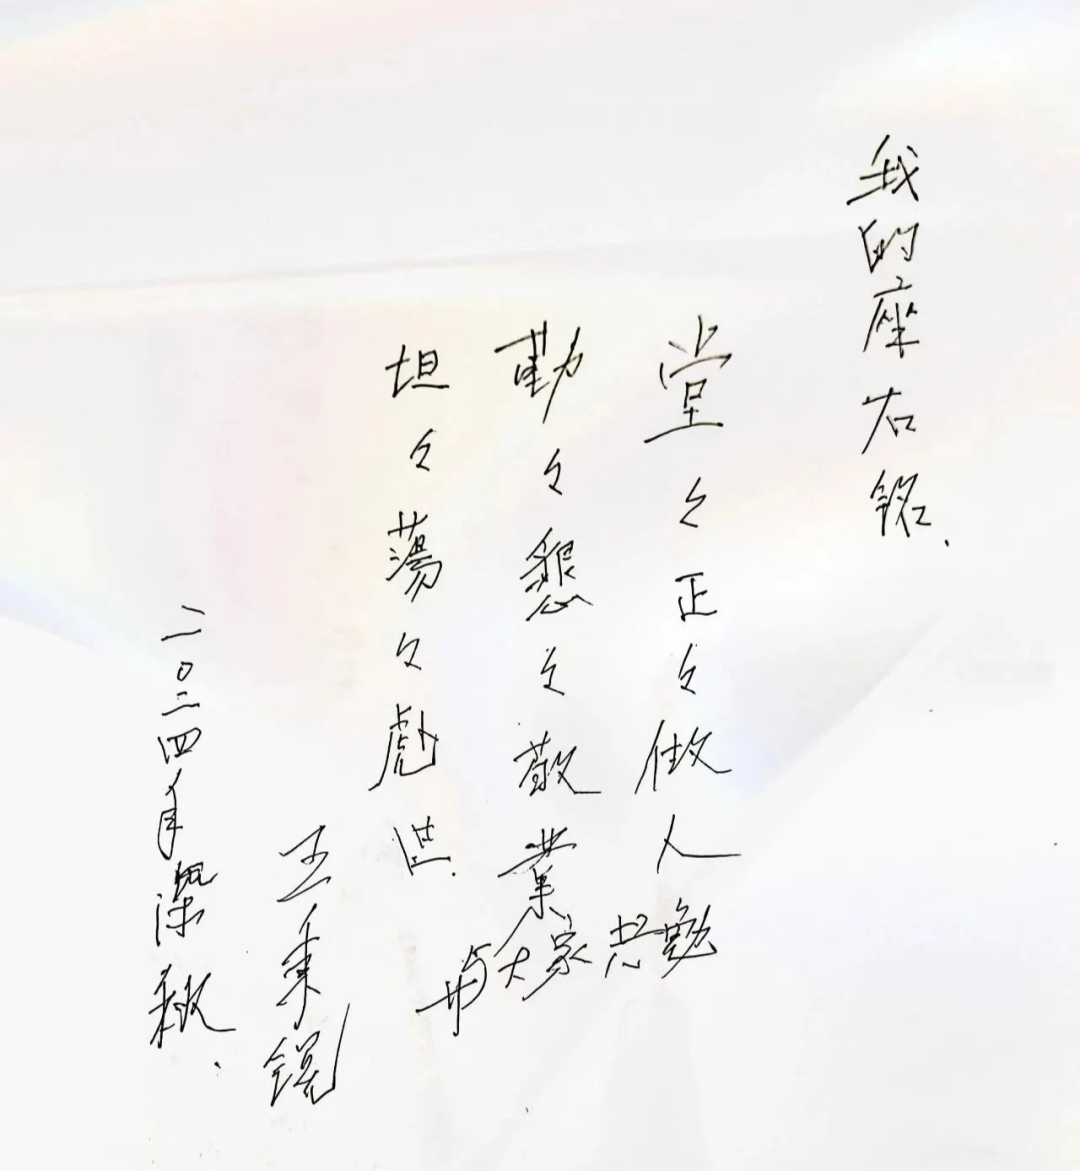 我的座右铭.
堂々正々做人
勤々懇々敬業
坦々蕩々處世.
与大家共勉
王秉
二〇二四年深秋.